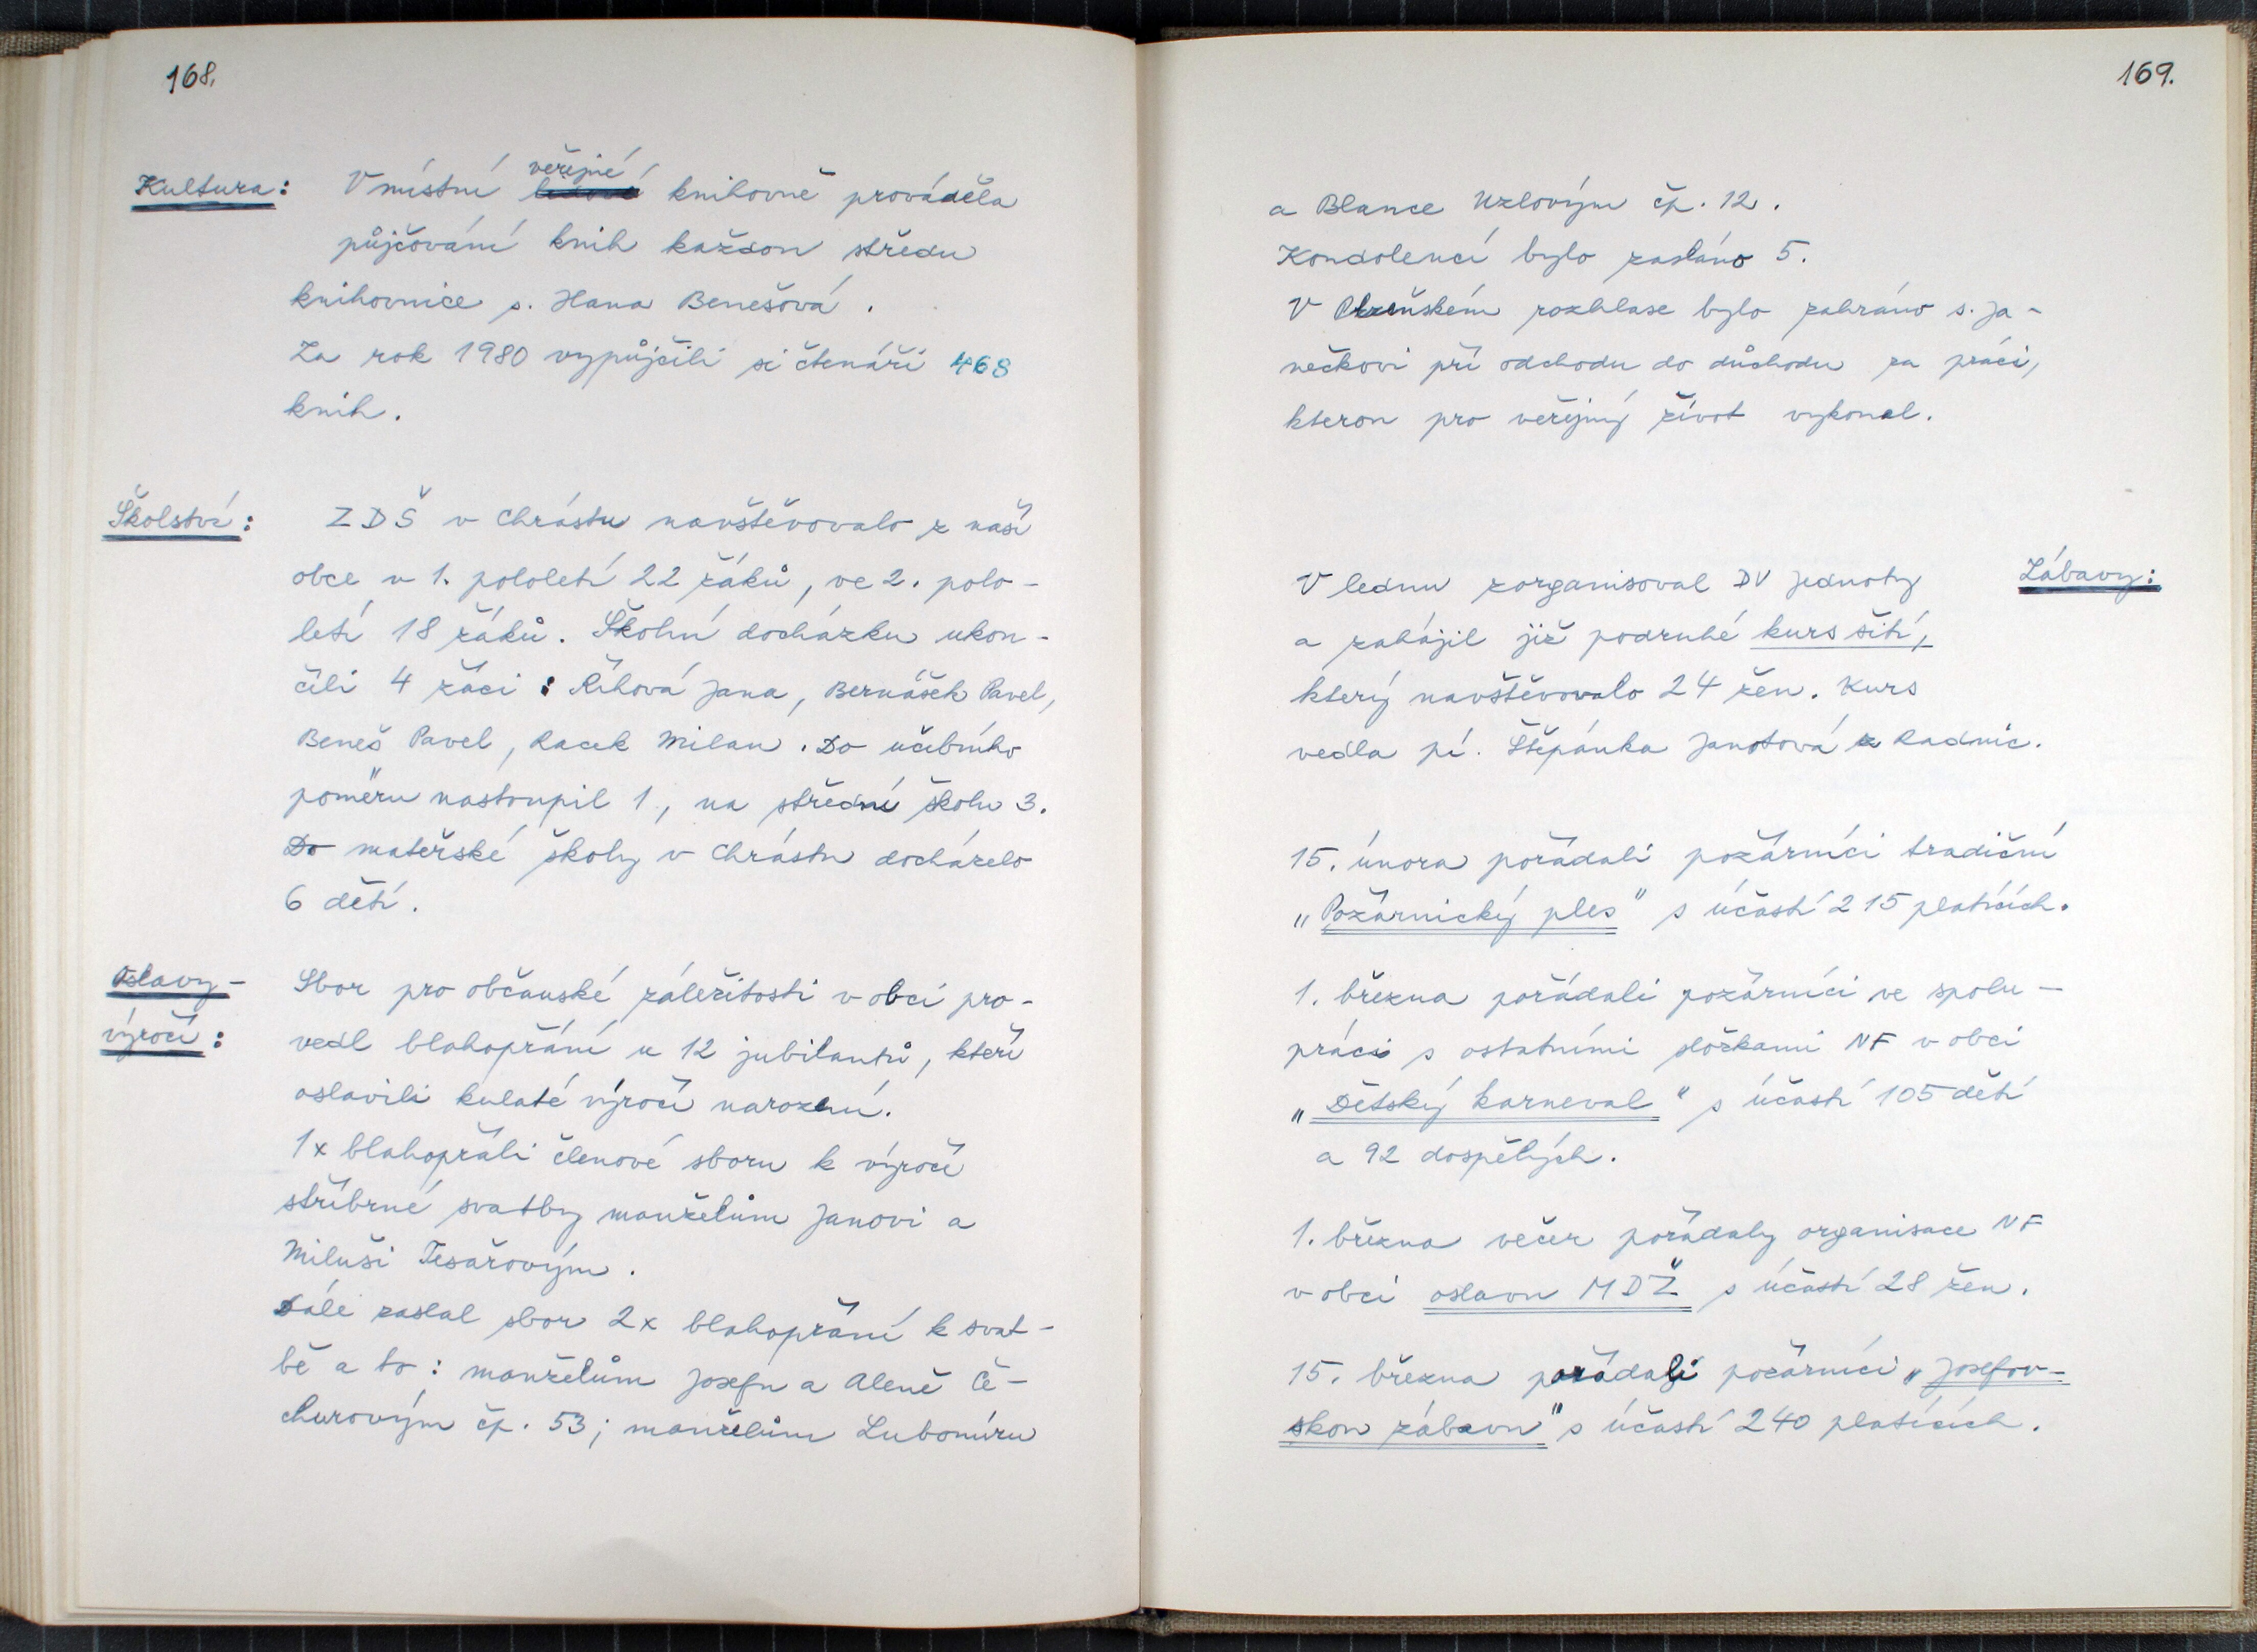 168.
Kultura: V místní veřejné knihovně prováděla
půjčování knih každou středu
knihovnice s. Hana Benešová.
Za rok 1980 vypůjčili si čtenáři 468
knih.
Školství: ZDŠ v Chrástu navštěvovalo z naší
obce v 1. pololetí 22 žáků, ve 2. polo-
letí 18 žáků. Školní docházku ukon-
čili 4 žáci: Říhová Jana, Bernášek Pavel,
Beneš Pavel, Racek Milan. Do učebního
poměru nastoupil 1, na střední školu 3.
Do mateřské školy v Chrástu docházelo
6 dětí.
Oslavy- Sbor pro občanské záležitosti v obci pro-
výročí: vedl blahopřání u 12 jubilantů, kteří
oslavili kulaté výročí narození.
1x blahopřáli členové sboru k výročí
stříbrné svatby manželům Janovi a
Miluši Tesařovým.
Dále zaslal sbor 2x blahopřání k svat-
bě a to: manželům Josefu a Aleně Če-
churovým čp. 53; manželům Lubomíru
169.
a Blance Uzlovým čp. 12.
Kondolencí bylo zasláno 5.
V Plzeňském rozhlase bylo zahráno s. Ja-
nečkovi při odchodu do důchodu za práci,
kterou pro veřejný život vykonal.
V lednu zorganisoval DV Jednoty Zábavy:
a zahájil již podruhé kurs šití,
který navštěvovalo 24 žen. Kurs
vedla pí. Štěpánka Janotová z Radnic.
15. února pořádali požárníci tradiční
„Požárnický ples" s účastí 215 platících.
1. března pořádali požárníci ve spolu-
práci s ostatními složkami NF v obci
„Dětský karneval" s účastí 105 dětí
a 92 dospělých.
1. března večer pořádaly organisace NF
v obci oslavu MDŽ s účastí 28 žen.
15. března pořádali požárníci „Josefov-
skou zábavu" s účastí 240 platících.